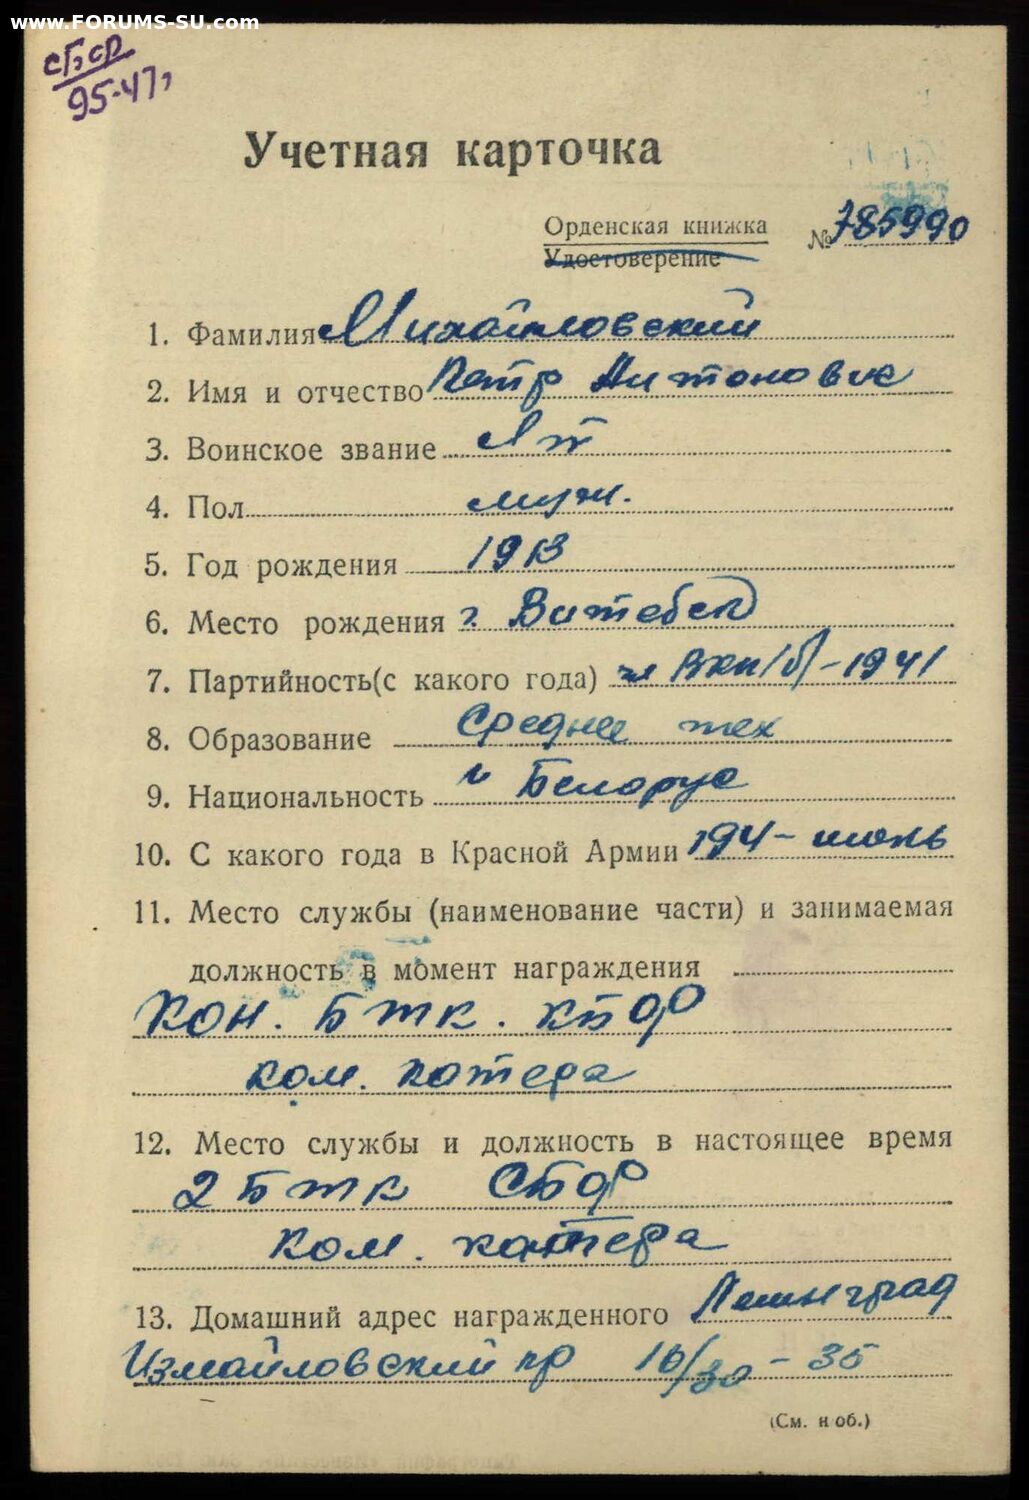 www.FORUMS-SU.com
сБср
95-47г
Учетная карточка
Орденская книжка № 785990
Удостоверение
1. Фамилия Михайловский
2. Имя и отчество Петр Антонович
3. Воинское звание Лт
4. Пол муж.
5. Год рождения 1913
6. Место рождения г. Витебск
7. Партийность(с какого года) чл ВКП/б/-1941
8. Образование Среднее тех
9. Национальность Белорус
10. С какого года в Красной Армии 1941 - июнь
11. Место службы (наименование части) и занимаемая
должность в момент награждения
БТК.
ком. катера
12. Место службы и должность в настоящее время
2 БТК СБОР
ком. катера
13. Домашний адрес награжденного Ленинград
Измайловский пр 16/30 - 35
(См. н об.)